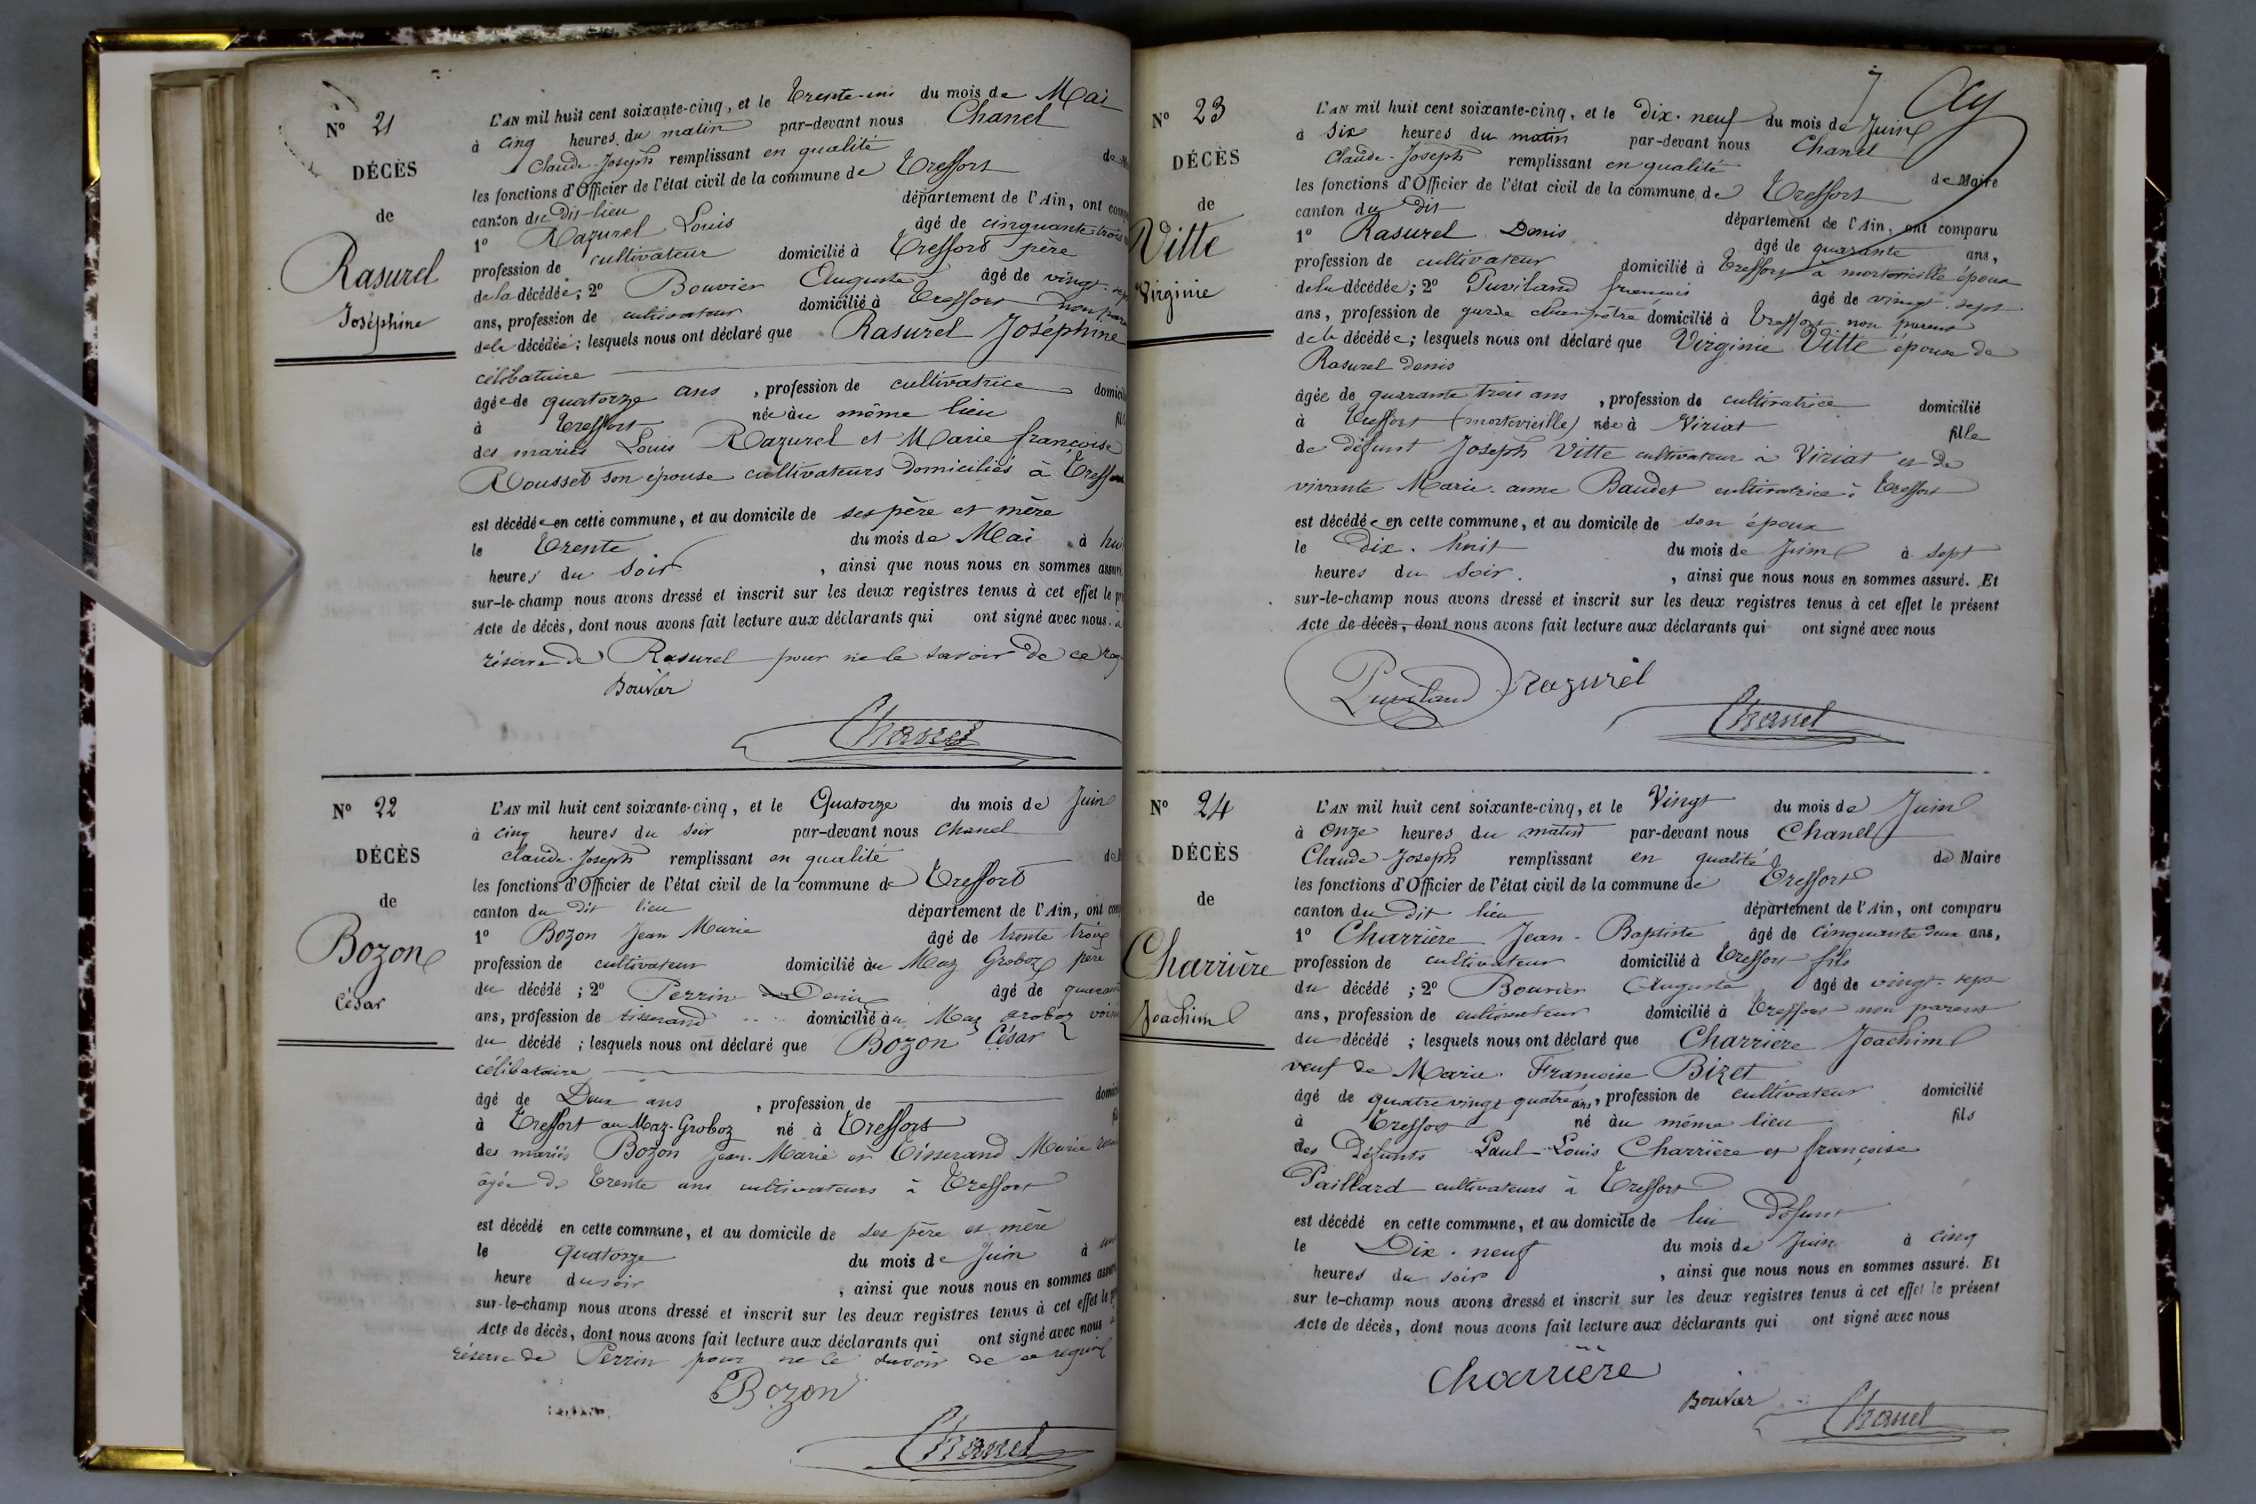 N° 21
DÉCÈS
de
Rasurel
Joséphine
L'AN mil huit cent soixante-cinq, et le Trente-un du mois de Mai
à cinq heures du matin par-devant nous Chanel
Claude-Joseph remplissant en qualité de
les fonctions d'Officier de l'état civil de la commune de Treffort
canton du Dit-lieu département de l'Ain, ont
1° Razurel Louis âgé de cinquante trois
profession de cultivateur domicilié à Treffort père
de la décédée; 2° Bouvier Auguste âgé de vingt-sept
ans, profession de cultivateur domicilié à Treffort non
de la décédée; lesquels nous ont déclaré que Rasurel Joséphine
célibataire
âgée de quatorze ans, profession de cultivatrice
à Treffort née au même lieu
des mariés Louis Razurel et Marie françoise
Rousset son épouse cultivateurs domiciliés à Treffort
est décédée en cette commune, et au domicile de ses père et mère
le Trente du mois de Mai à
heures du soir, ainsi que nous nous en sommes assuré
sur-le-champ nous avons dressé et inscrit sur les deux registres tenus à cet effet le
Acte de décès, dont nous avons fait lecture aux déclarants qui ont signé avec nous. à
réserve de Rasurel pour ne le savoir de ce
Bouvier
Chanel
N° 22
DÉCÈS
de
Bozon
César
L'AN mil huit cent soixante-cinq, et le Quatorze du mois de Juin
à cinq heures du soir par-devant nous Chanel
Claude-Joseph remplissant en qualité
les fonctions d'Officier de l'état civil de la commune de Treffort
canton du dit lieu département de l'Ain, ont
1° Bozon Jean Marie âgé de trente trois
profession de cultivateur domicilié au Maz Groboz père
du décédé; 2° Perrin Denis âgé de
ans, profession de tisserand domicilié au Maz Groboz
du décédé; lesquels nous ont déclaré que Bozon César
célibataire
âgé de Deux ans, profession de
à Treffort au Maz-Groboz né à Treffort
des mariés Bozon Jean-Marie et Tisserand Marie
âgée de Trente ans cultivateurs à Treffort
est décédé en cette commune, et au domicile de ses père et mère
le Quatorze du mois de Juin à
heure du soir, ainsi que nous nous en sommes assuré
sur-le-champ nous avons dressé et inscrit sur les deux registres tenus à cet effet le
Acte de décès, dont nous avons fait lecture aux déclarants qui ont signé avec nous à
réserve de Perrin pour ne le savoir de ce requis
Bozon
Chanel
N° 23
DÉCÈS
de
Vitte
Virginie
L'AN mil huit cent soixante-cinq, et le Dix-neuf du mois de Juin
à six heures du matin par-devant nous Chanel
Claude-Joseph remplissant en qualité de Maire
les fonctions d'Officier de l'état civil de la commune de Treffort
canton du dit département de l'Ain, ont comparu
1° Rasurel Denis âgé de quarante ans,
profession de cultivateur domicilié à Treffort à mortevieille époux
de la décédée; 2° Puviland françois âgé de vingt-sept
ans, profession de garde champêtre domicilié à Treffort non parent
de la décédée; lesquels nous ont déclaré que Virginie Vitte épouse de
Rasurel denis
âgée de quarante trois ans, profession de cultivatrice domicilié
à Treffort (mortevieille) née à Viriat fille
de défunt Joseph Vitte cultivateur à Viriat et de
vivante Marie-anne Baudet cultivatrice à Treffort
est décédée en cette commune, et au domicile de son époux
le Dix-huit du mois de Juin à sept
heures du soir, ainsi que nous nous en sommes assuré. Et
sur-le-champ nous avons dressé et inscrit sur les deux registres tenus à cet effet le présent
Acte de décès, dont nous avons fait lecture aux déclarants qui ont signé avec nous
Puviland razurel
Chanel
N° 24
DÉCÈS
de
Charrière
Joachim
L'AN mil huit cent soixante-cinq, et le Vingt du mois de Juin
à Onze heures du matin par-devant nous Chanel
Claude-Joseph remplissant en qualité de Maire
les fonctions d'Officier de l'état civil de la commune de Treffort
canton du Dit lieu département de l'Ain, ont comparu
1° Charrière Jean-Baptiste âgé de cinquante deux ans,
profession de cultivateur domicilié à Treffort fils
du décédé; 2° Bouvier Auguste âgé de vingt-sept
ans, profession de cultivateur domicilié à Treffort non parent
du décédé; lesquels nous ont déclaré que Charrière Joachim
veuf de Marie-Françoise Bizet
âgé de quatre vingt quatre ans, profession de cultivateur domicilié
à Treffort né au même lieu fils
des Défunts Paul-Louis Charrière et françoise
Paillard cultivateurs à Treffort
est décédé en cette commune, et au domicile de lui Défunt
le Dix-neuf du mois de Juin à cinq
heures du soir, ainsi que nous nous en sommes assuré. Et
sur le-champ nous avons dressé et inscrit sur les deux registres tenus à cet effet le présent
Acte de décès, dont nous avons fait lecture aux déclarants qui ont signé avec nous
Charrière
Bouvier
Chanel